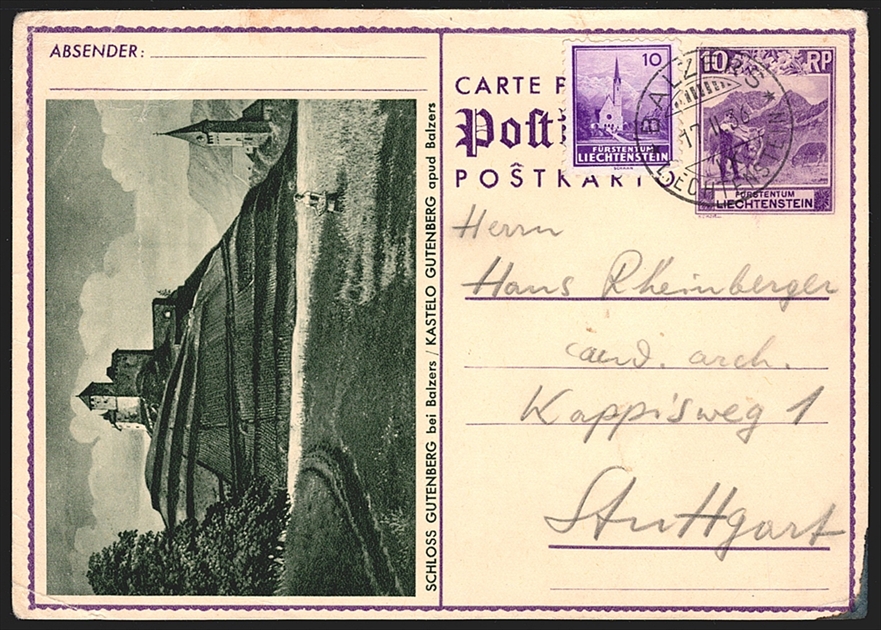 ABSENDER:
SCHLOSS GUTENBERG bei Balzers / KASTELO GUTENBERG apud Balzers
CARTE P
Posti
POSTKART
10
FÜRSTENTUM
LIECHTENSTEIN
SCHAAN
10 RP
FÜRSTENTUM
LIECHTENSTEIN
BALZERS
17. II. 36
LIECHTENSTEIN
Herrn
Hans Rheinberger
cand. arch.
Kappisweg 1
Stuttgart